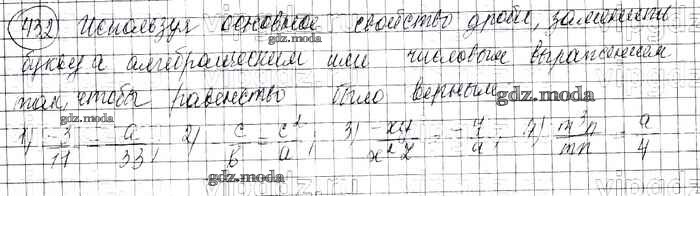 432 Используя основное свойство дроби, замените
букву а алгебраическим или числовым выражением
так, чтобы равенство было верным
gdz.moda
gdz.moda
1) 3/11 = a/33; 2) c/b = c²/a; 3) xy/x²y = y/a; 4) m³n/mn = a/4
gdz.moda
gdz.moda